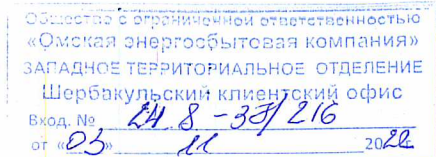 Общество с ограниченной ответственностью
«Омская энергосбытовая компания»
ЗАПАДНОЕ ТЕРРИТОРИАЛЬНОЕ ОТДЕЛЕНИЕ
Шербакульский клиентский офис
Вход. № 24.8-37/216
от «03» 11 2020г.